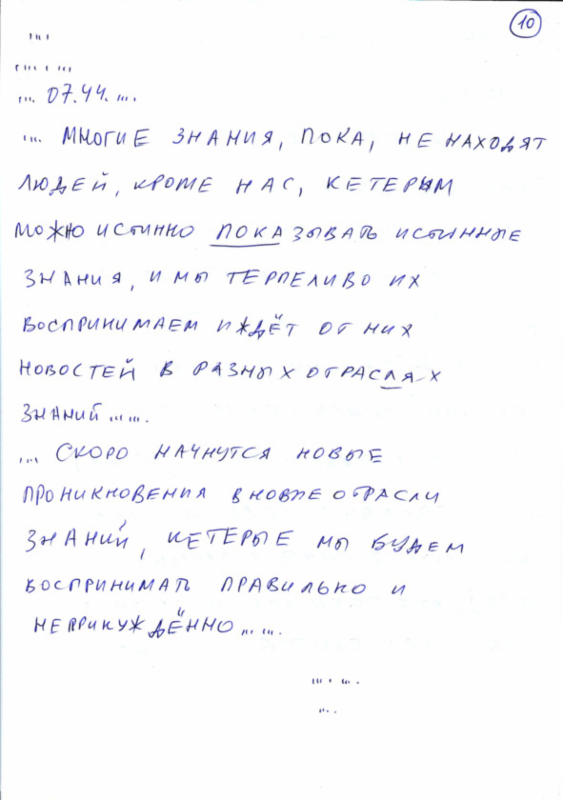 10
...
.... . ...
... 07.44. ....
... МНОГИЕ ЗНАНИЯ, ПОКА, НЕ НАХОДЯТ
ЛЮДЕЙ, КРОМЕ НАС, КЕТЕРЫМ
МОЖНО ИСТИННО ПОКАЗЫВАТЬ ИСТИННЫЕ
ЗНАНИЯ, И МЫ ТЕРПЕЛИВО ИХ
ВОСПРИНИМАЕМ И ЖДЁТ ОТ НИХ
НОВОСТЕЙ В РАЗНЫХ ОТРАСЛЯХ
ЗНАНИЙ ... ...
... СКОРО НАЧНУТСЯ НОВЫЕ
ПРОНИКНОВЕНИЯ В НОВЫЕ ОТРАСЛИ
ЗНАНИЙ, КЕТЕРЫЕ МЫ БУДЕМ
ВОСПРИНИМАТЬ ПРАВИЛЬКО И
НЕПРИКУЖДЁННО... ...
... . ... .
... .